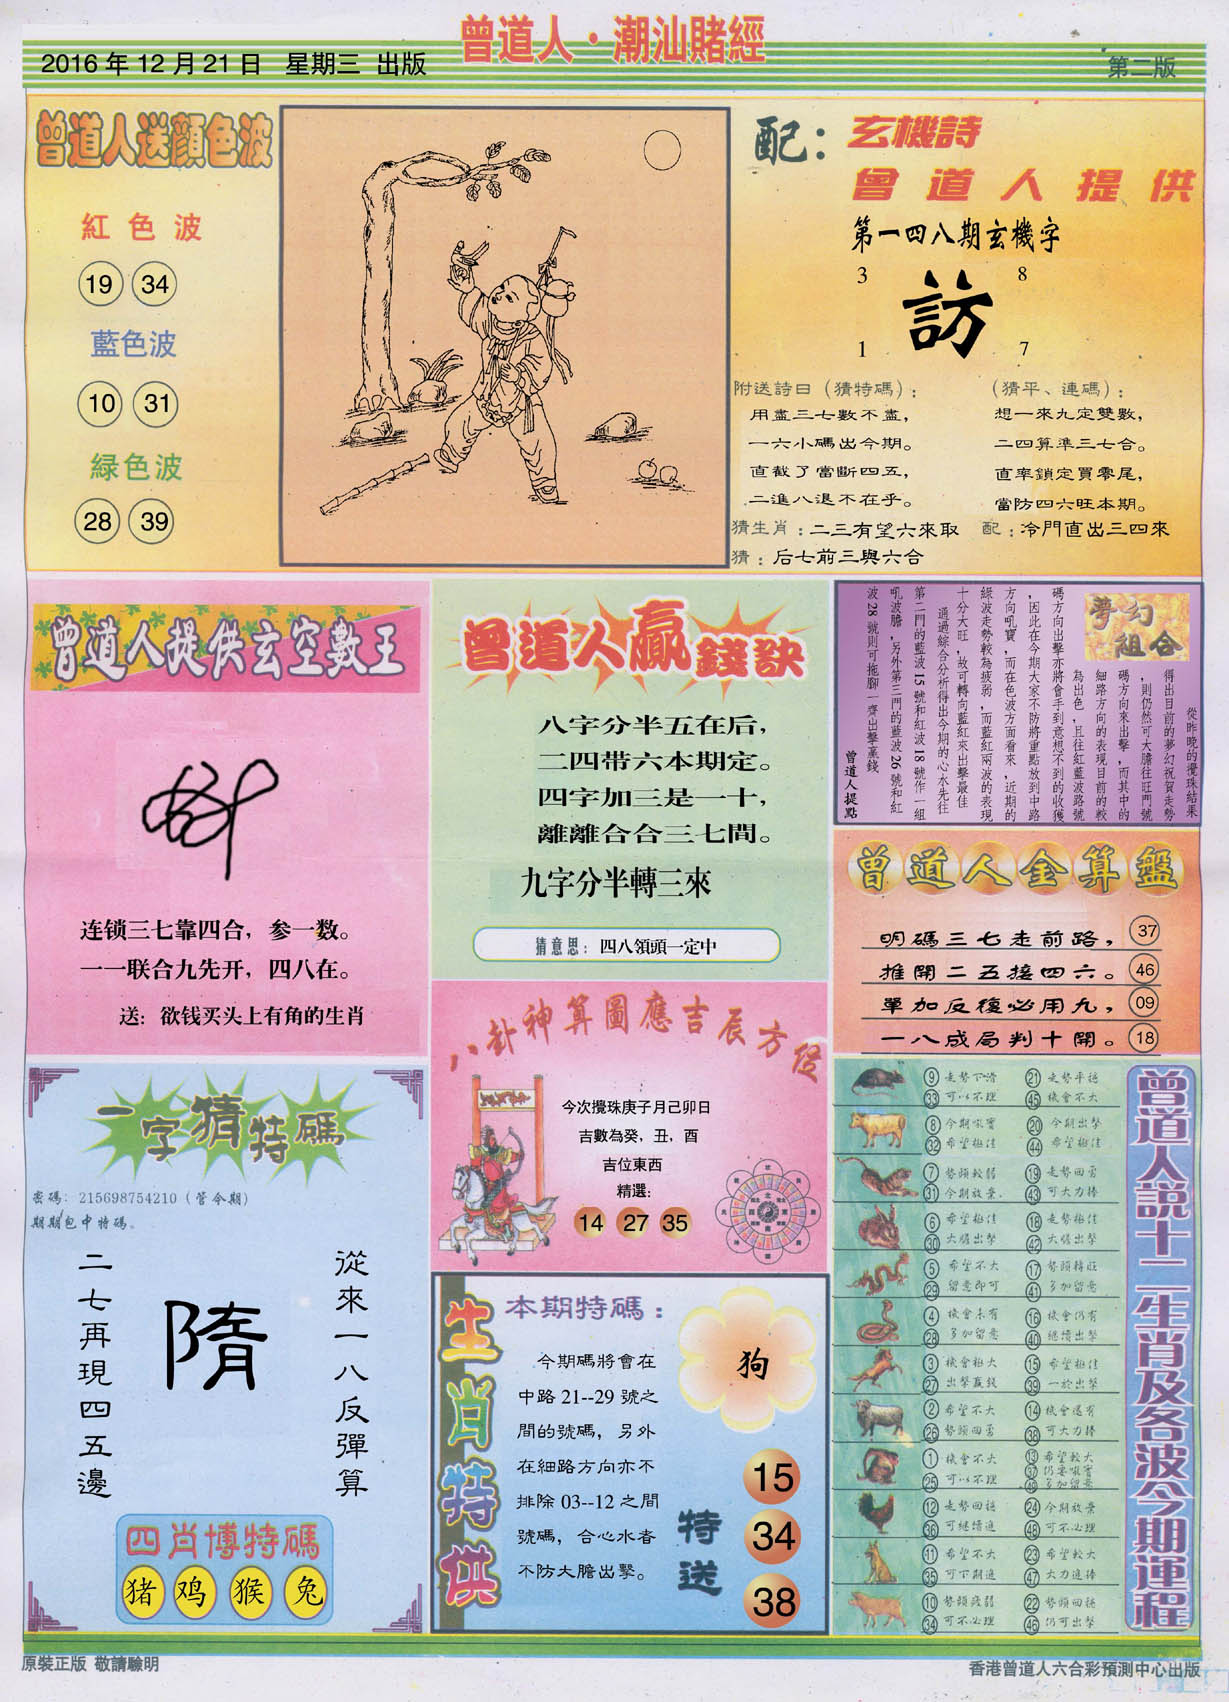 2016年12月21日 星期三 出版
曾道人·潮汕賭經
第二版
曾道人送顏色波
紅色波
19 34
藍色波
10 31
緑色波
28 39
配：
玄機詩
曾道人提供
第一四八期玄機字
3 8
訪
1 7
附送詩曰（猜特碼）：
用盡三七數不盡，
一六小碼出今期。
直截了當斷四五，
二進八退不在乎。
（猜平、連碼）：
想一來九定雙數，
二四算準三七合。
直率鎖定買零尾，
當防四六旺本期。
猜生肖：二三有望六來取
配：冷門直出三四來
猜：后七前三與六合
曾道人提供玄空數王
连锁三七靠四合，参一数。
一一联合九先开，四八在。
送：欲钱买头上有角的生肖
曾道人贏錢訣
八字分半五在后，
二四带六本期定。
四字加三是一十，
離離合合三七間。
九字分半轉三來
猜意思：四八領頭一定中
夢幻組合
從昨晚的攪珠結果
得出目前的夢幻祝賀走勢
，則仍然可大膽往旺門號
碼方向來出擊，而其中的
細路方向的表現目前的較
為出色，且往紅藍波路號
碼方向出擊亦將會手到意想不到的收獲
，因此在今期大家不防將重點放到中路
方向吼寶，而在色波方面看來，近期的
綠波走勢較為疲弱，而藍紅兩波的表現
十分大旺，故可轉向藍紅來出擊最佳
通過綜合分析得出今期的心水先往
第二門的藍波15號和紅波18號作一組
吼波膽，另外第三門的藍波26號和紅
波28號則可拖腳一齊出擊贏錢
曾道人提點
曾道人金算盤
明碼三七走前路， 37
推開二五接四六。 46
單加反復必用九， 09
一八成局判十開。 18
八卦神算圖應吉辰方位
今次攪珠庚子月己卯日
吉數為癸，丑，酉
吉位東西
精選：
14 27 35
一字猜特碼
密碼：215698754210（管今期）
期期包中特碼。
從來一八反彈算
隋
二七再現四五邊
四肖博特碼
猪 鸡 猴 兔
生肖特供
本期特碼：
今期碼將會在
中路21--29號之
間的號碼，另外
在細路方向亦不
排除03--12之間
號碼，合心水者
不防大膽出擊。
狗
特送
15
34
38
曾道人説十二生肖及各波今期運程
9 走勢下滑 21 走勢平穩
33 可以不理 45 機會不大
8 今期吼寶 20 今期出擊
32 希望極佳 44 希望極佳
7 勢頭較弱 19 走勢回勇
31 今期放棄 43 可大力捧
6 希望極佳 18 走勢極佳
30 大膽出擊 42 大膽出擊
5 希望不大 17 勢頭轉旺
29 留意即可 41 多加留意
4 機會未有 16 機會仍有
28 多加留意 40 繼續出擊
3 機會極大 15 希望極佳
27 出擊贏錢 39 一於出擊
2 希望不大 14 機會還有
26 勢頭回勇 38 可大力捧
1 機會不大 13 希望較大
25 可以不理 37 仍要吼寶
49 多加留意
12 走勢回穩 24 今期放棄
36 可繼續追 48 可不必理
11 希望不大 23 希望較大
35 可下期追 47 大力追捧
10 勢頭疲弱 22 勢頭回穩
34 可不必理 46 仍可出擊
原裝正版 敬請驗明
香港曾道人六合彩預測中心出版